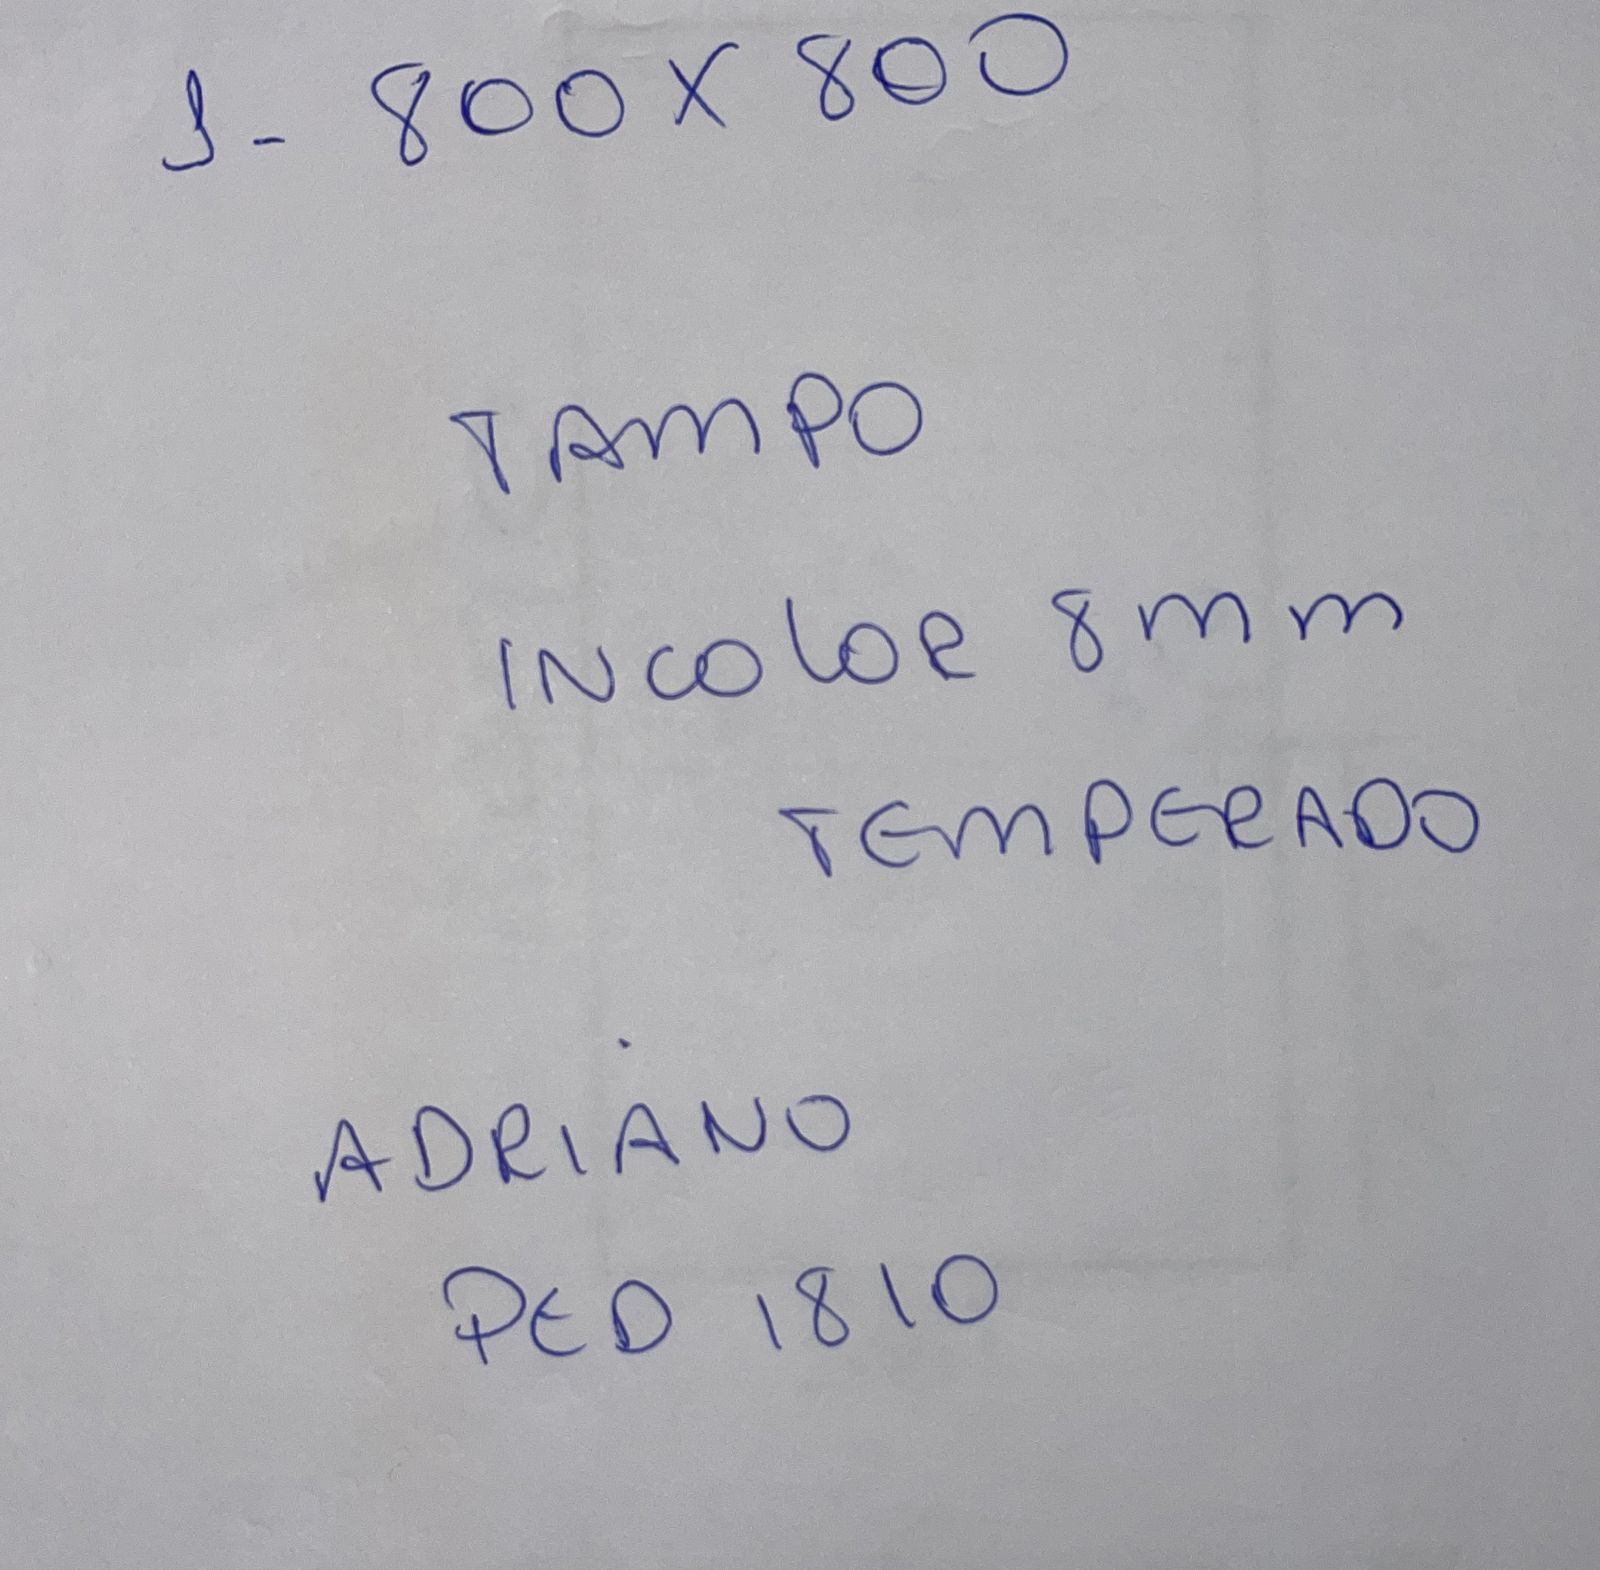 1- 800X800
TAMPO
INCOLOR 8mm
TEMPERADO
ADRIANO
PED 1810